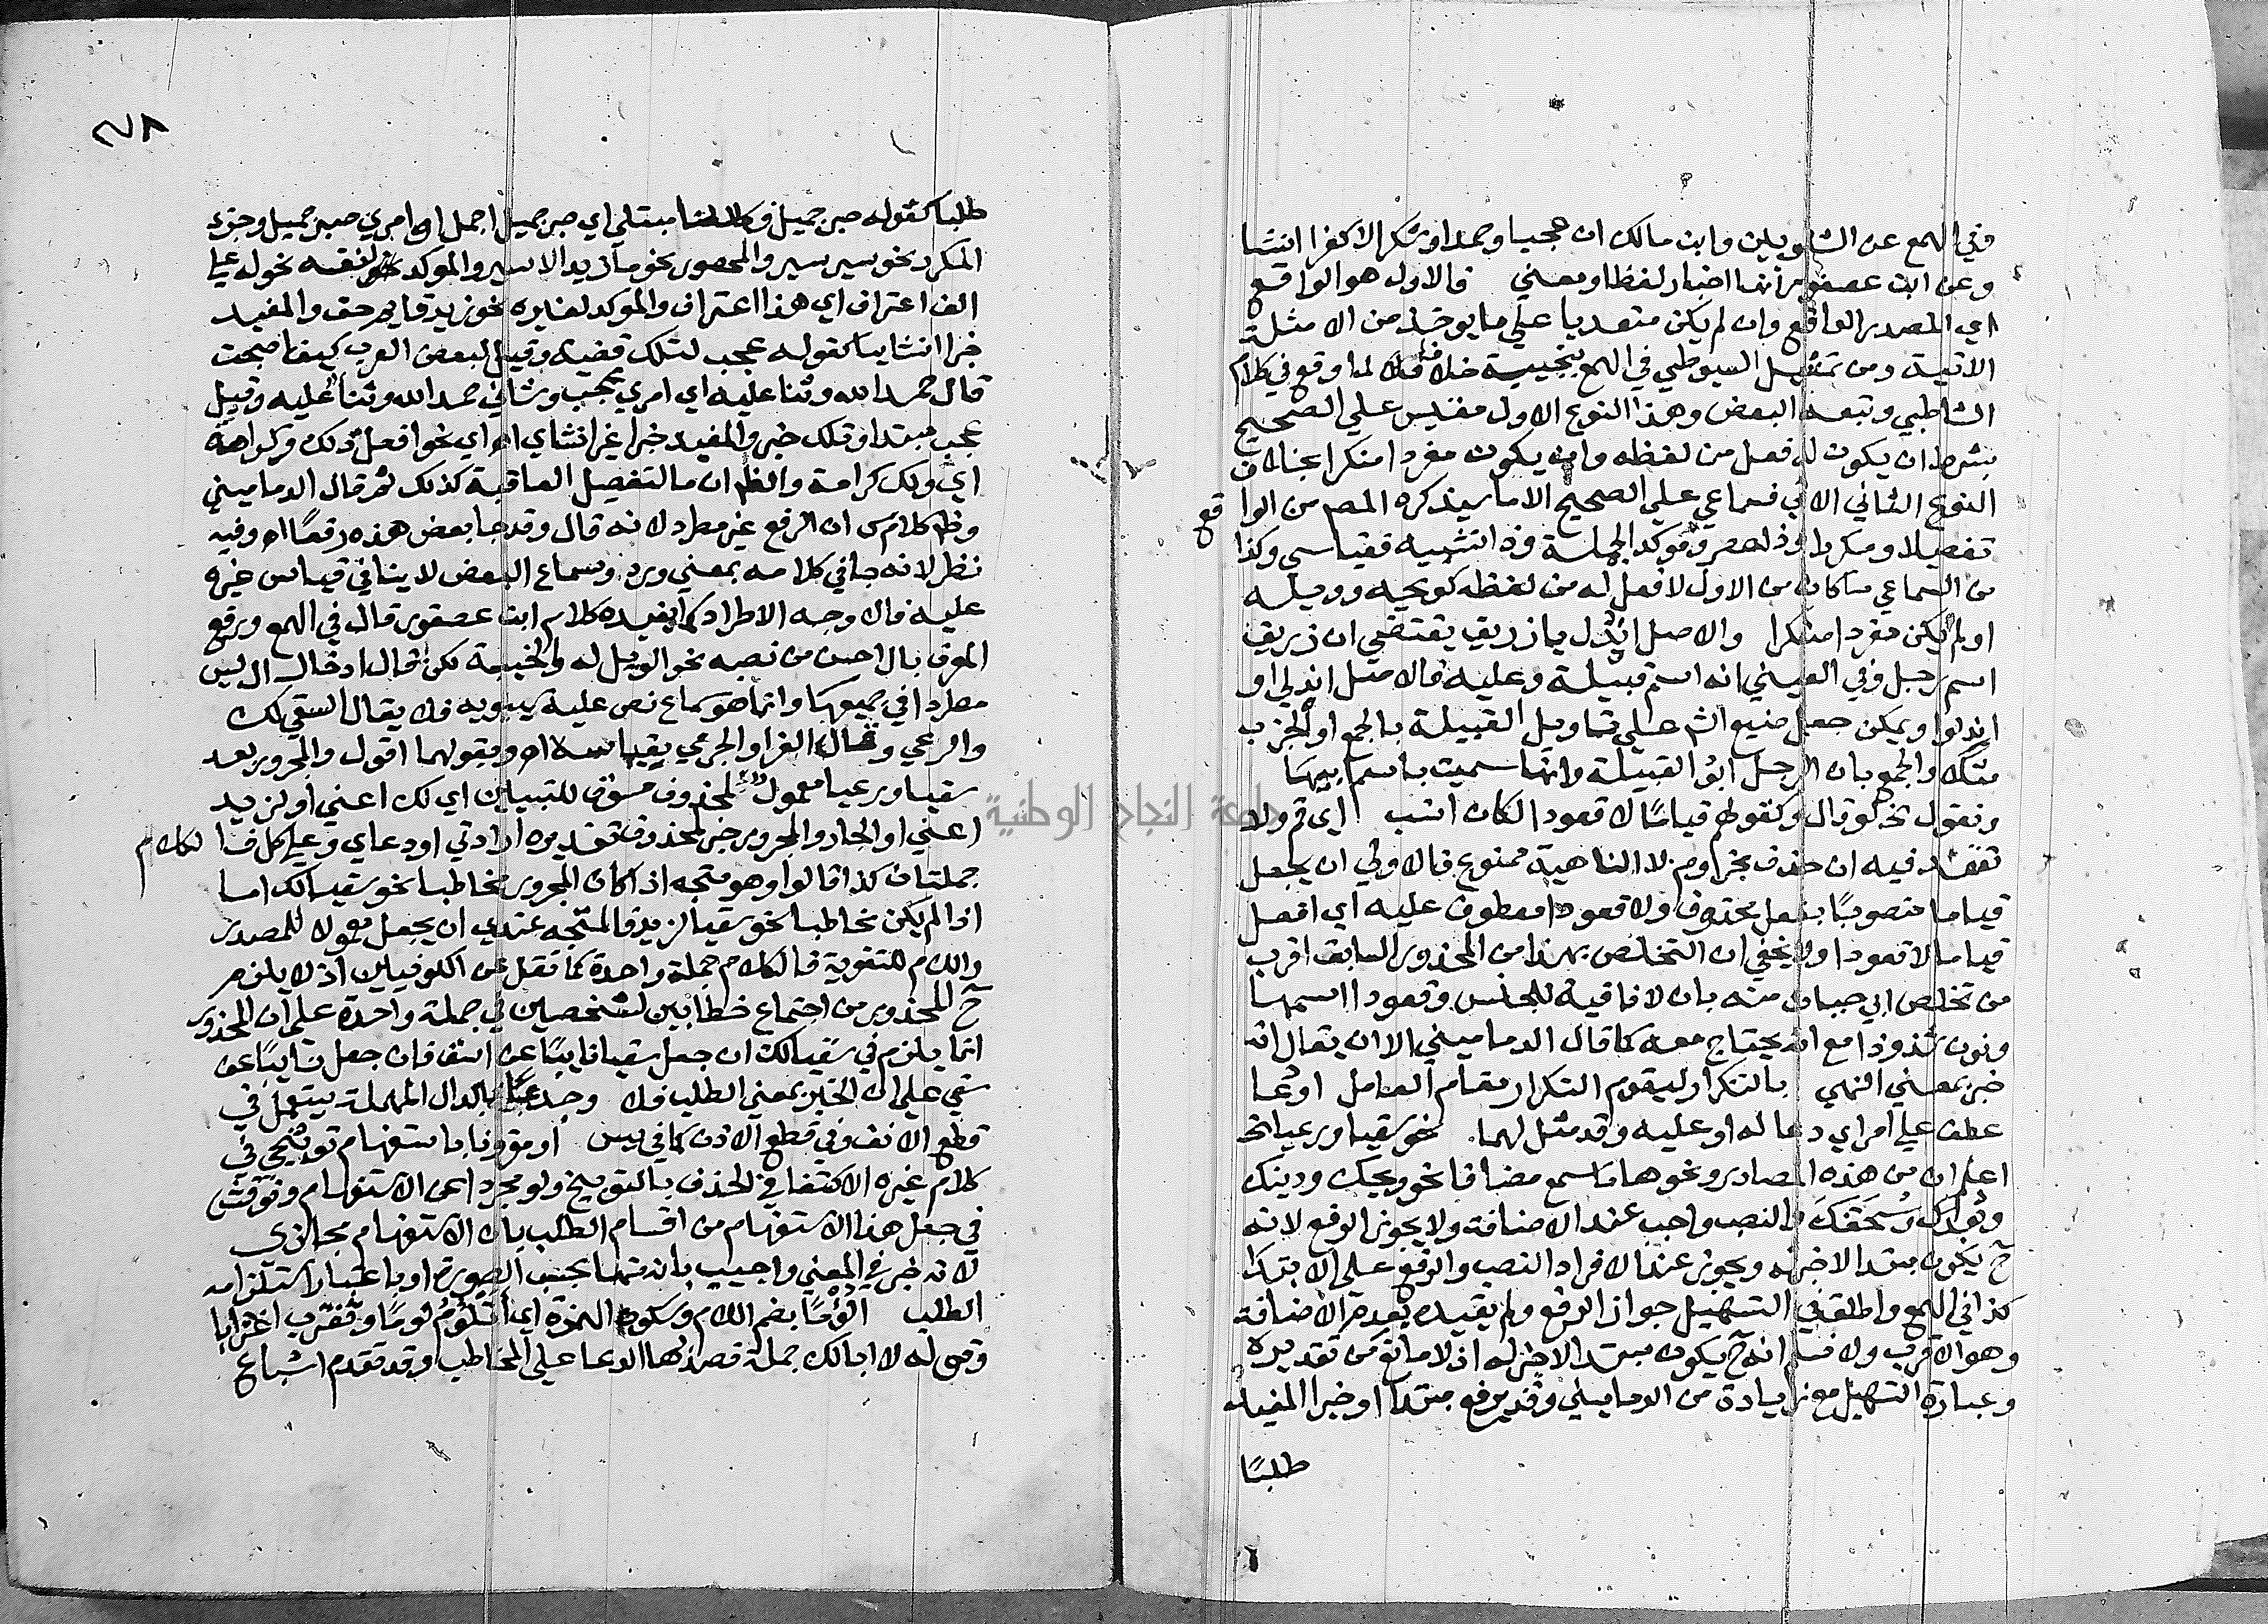 وفي الهمع عن الشلوبين وابن مالك ان عجبا وحمدا وشكرا لا كفرا انشا
وعن ابن عصفور انها اخبار لفظا ومعنى فالاول هو الواقع
اي المصدر الواقع وان لم يكن متعديا على ما يوخذ من الامثلة
الاتية ومن تمثيل السيوطي في الهمع بخيبة خلافا لما وقع في كلام
الشاطبي وتبعه البعض وهذا النوع الاول مقيس على الصحيح
بشرط ان يكون له فعل من لفظه وان يكون مفردا منكرا بخلاف
النوع الثاني الاتي فسماعي على الصحيح الا ما سيذكره المص من الواقع
تفصيلا ومكررا وذا حصر وموكد الجملة وذا تشبيه فقياسي وكذا
من السماعي ما كان من الاول لا فعل له من لفظه كويحه وويله
او لم يكن مفردا منكرا والاصل اندل يا زريق يقتضي ان زريق
اسم رجل وفي العيني انه اسم قبيلة وعليه فالاصل اندلي او
اندلوا ويمكن جعل صنيع الش على تاويل القبيلة بالجمع او الحزب
مثلا والجمع بان الرجل ابو القبيلة وانها سميت باسم ابيها
ونقول نحو قال وكقولهم قياما لا قعودا لكان انسب اي قم ولا
تقعد فيه ان حذف مجزوم لا الناهية ممنوع فالاولى ان يجعل
قياما منصوبا بفعل محذوف ولا قعودا معطوف عليه اي افعل
قياما لا قعودا ولا يخفى ان التخلص بهذا من المحذور السابق اقرب
من تخلص ابي حيان منه بان لا نافية للجنس وقعودا اسمها
ونون شذوذا مع انه يحتاج معه كما قال الدماميني الا ان يقال انه
خبر بمعنى النهي بالتكرار ليقوم التكرار مقام العامل او دعا
عطف على امر اي دعا له او عليه وقد مثل لهما نحو سقيا ورعيا الخ
اعلم ان من هذه المصادر ونحوها ما سمع مضافا نحو ويحك ودينك
وبعدك وسحقك والنصب واجب عند الاضافة ولا يجوز الرفع لانه
ح يكون مبتدا لا خبر له ويجوز عند الافراد النصب والرفع على الابتدا
كذا في الهمع واطلق في التسهيل جواز الرفع ولم يقيده بعدم الاضافة
وهو الاقرب ولا نسلم انه ح يكون مبتدا لا خبر له اذ لا مانع من تقديره
وعبارة التسهيل مع زيادة من الدماميني وقد يرفع مبتدا او خبرا المفيد
طلبا
طلبا كقوله صبر جميل فكلانا مبتلى اي صبر جميل اجمل او امري صبر جميل وخبره
المكرر نحو سير سير والمحصور نحو ما زيد الا سير والموكد لنفسه نحو له علي
الف اعتراف اي هذا اعتراف والموكد لغيره نحو زيد قايم حق والمفيد
خبرا انشايا كقوله عجب لتلك قضية وقيل لبعض العرب كيف اصبحت
قال حمد الله وثنا عليه اي امري عجب وشاني حمد الله وثنا عليه وقيل
عجب مبتدا وتلك خبر والمفيد خبرا غير انشاي اه اي نحو افعل ذلك وكرامة
اي ولك كرامة والظ ان ما لتفصيل العاقبة كذلك ثم قال الدماميني
وظ كلام س ان الرفع غير مطرد لانه قال وقد جا بعض هذه رفعا اه وفيه
نظر لانه جا في كلامه بمعنى ورد وسماع البعض لا ينافي قياس غيره
عليه فالاوجه الاطراد كما يفيده كلام ابن عصفور قال في الهمع ورفع
المعرف بال احسن من نصبه نحو الويل له والخيبة لكن قال ادخال ال ليس
مطردا في جميعها وانما هو سماع نص عليه سيبويه فلا يقال السقي لك
والرعي وقال الفرا والجرمي بقياسه اه وبقولهما اقول والمجرور بعد
سقيا ورعيا معمول لمحذوف مسوق للتبيين اي لك اعني او لزيد
اعني او الجار والمجرور خبر لمحذوف تقديره ارادتي او دعاي وعلى كل فالكلام
جملتان كذا قالوا وهو متجه اذا كان المجرور مخاطبا نحو سقيا لك اما
اذا لم يكن مخاطبا نحو سقيا لزيد فالمتجه عندي ان يجعل معمولا للمصدر
واللام للتقوية فالكلام جملة واحدة كما نقل عن الكوفيين اذ لا يلزم
ح المحذور من اجتماع خطابين لشخصين في جملة واحدة على ان المحذور
انما يلزم في سقيا لك ان جعل سقيا نايبا عن اسق فان جعل نايبا عن
سقى على ان الخبر بمعنى الطلب فلا وجدعا بالدال المهملة يستعمل في
قطع الانف وفي قطع الاذن كما في يس او مقرونا باستفهام توبيخي في
كلام غيره الاكتفا في الحذف بالتوبيخ ولو مجردا عن الاستفهام ونوقش
في جعل هذا الاستفهام من اقسام الطلب بان الاستفهام مجازي
لانه خبر في المعنى واجيب بانه منها بحسب الصورة او باعتبار استلزامه
الطلب الؤما بضم اللام وسكون الهمزة اي اتلؤم لوما وتغترب اغترابا
وقوله لا ابا لك جملة قصد بها الدعا على المخاطب وقد تقدم اشباع
جامعة النجاح الوطنية